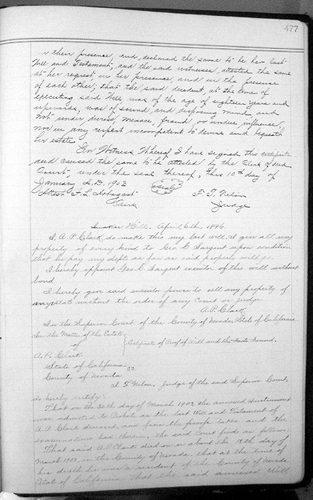 477
in their presence, and declared the same to be her last
Will and Testament, and the said witnesses attested the same
at her request in her presence, and in the presence
of each other; that the said decedent, at the time of
executing said Will was of the age of eighteen years and
upwards, was of sound and disposing mind, and
not under duress, menace, fraud, or undue influence,
nor in any respect incompetent to devise and bequeath
her estate.
In Witness Whereof I have signed this certificate
and caused the same to be attested by the Clerk of said
Court, under the seal thereof, this 10th day of
January A.D. 1902
Attest F. L. Arbogast Seal F. T. Nilon
Clerk Judge
Hill, April 6th, 1896.
I, A. P. Clark, do make this my last will. I give all my
property of every kind to Geo. C. Sargent upon condition
that he pay my debts as far as said property will go.
I hereby appoint Geo. C. Sargent executor of this will without
bond.
I hereby give said executor power to sell any property of
my estate without the order of any Court or judge.
A. P. Clark
In the Superior Court of the County of Nevada, State of California
In the Matter of the Estate
of
A. P. Clark
Certificate of Proof of Will and the Facts Found.
State of California
County of Nevada ss.
I, F. T. Nilon, judge of the said Superior Court,
do hereby certify:
That on the day of March 1902 the annexed Instrument
was admitted to Probate as the last Will and Testament of
A. P. Clark deceased, and from the proofs taken and the
examination had therein, the said Court finds as follows:
That said A. P. Clark died on or about the day of
March 1902, in the County of Nevada, that at the time of
his death he was a resident of the County of Nevada,
State of California. That the said annexed Will